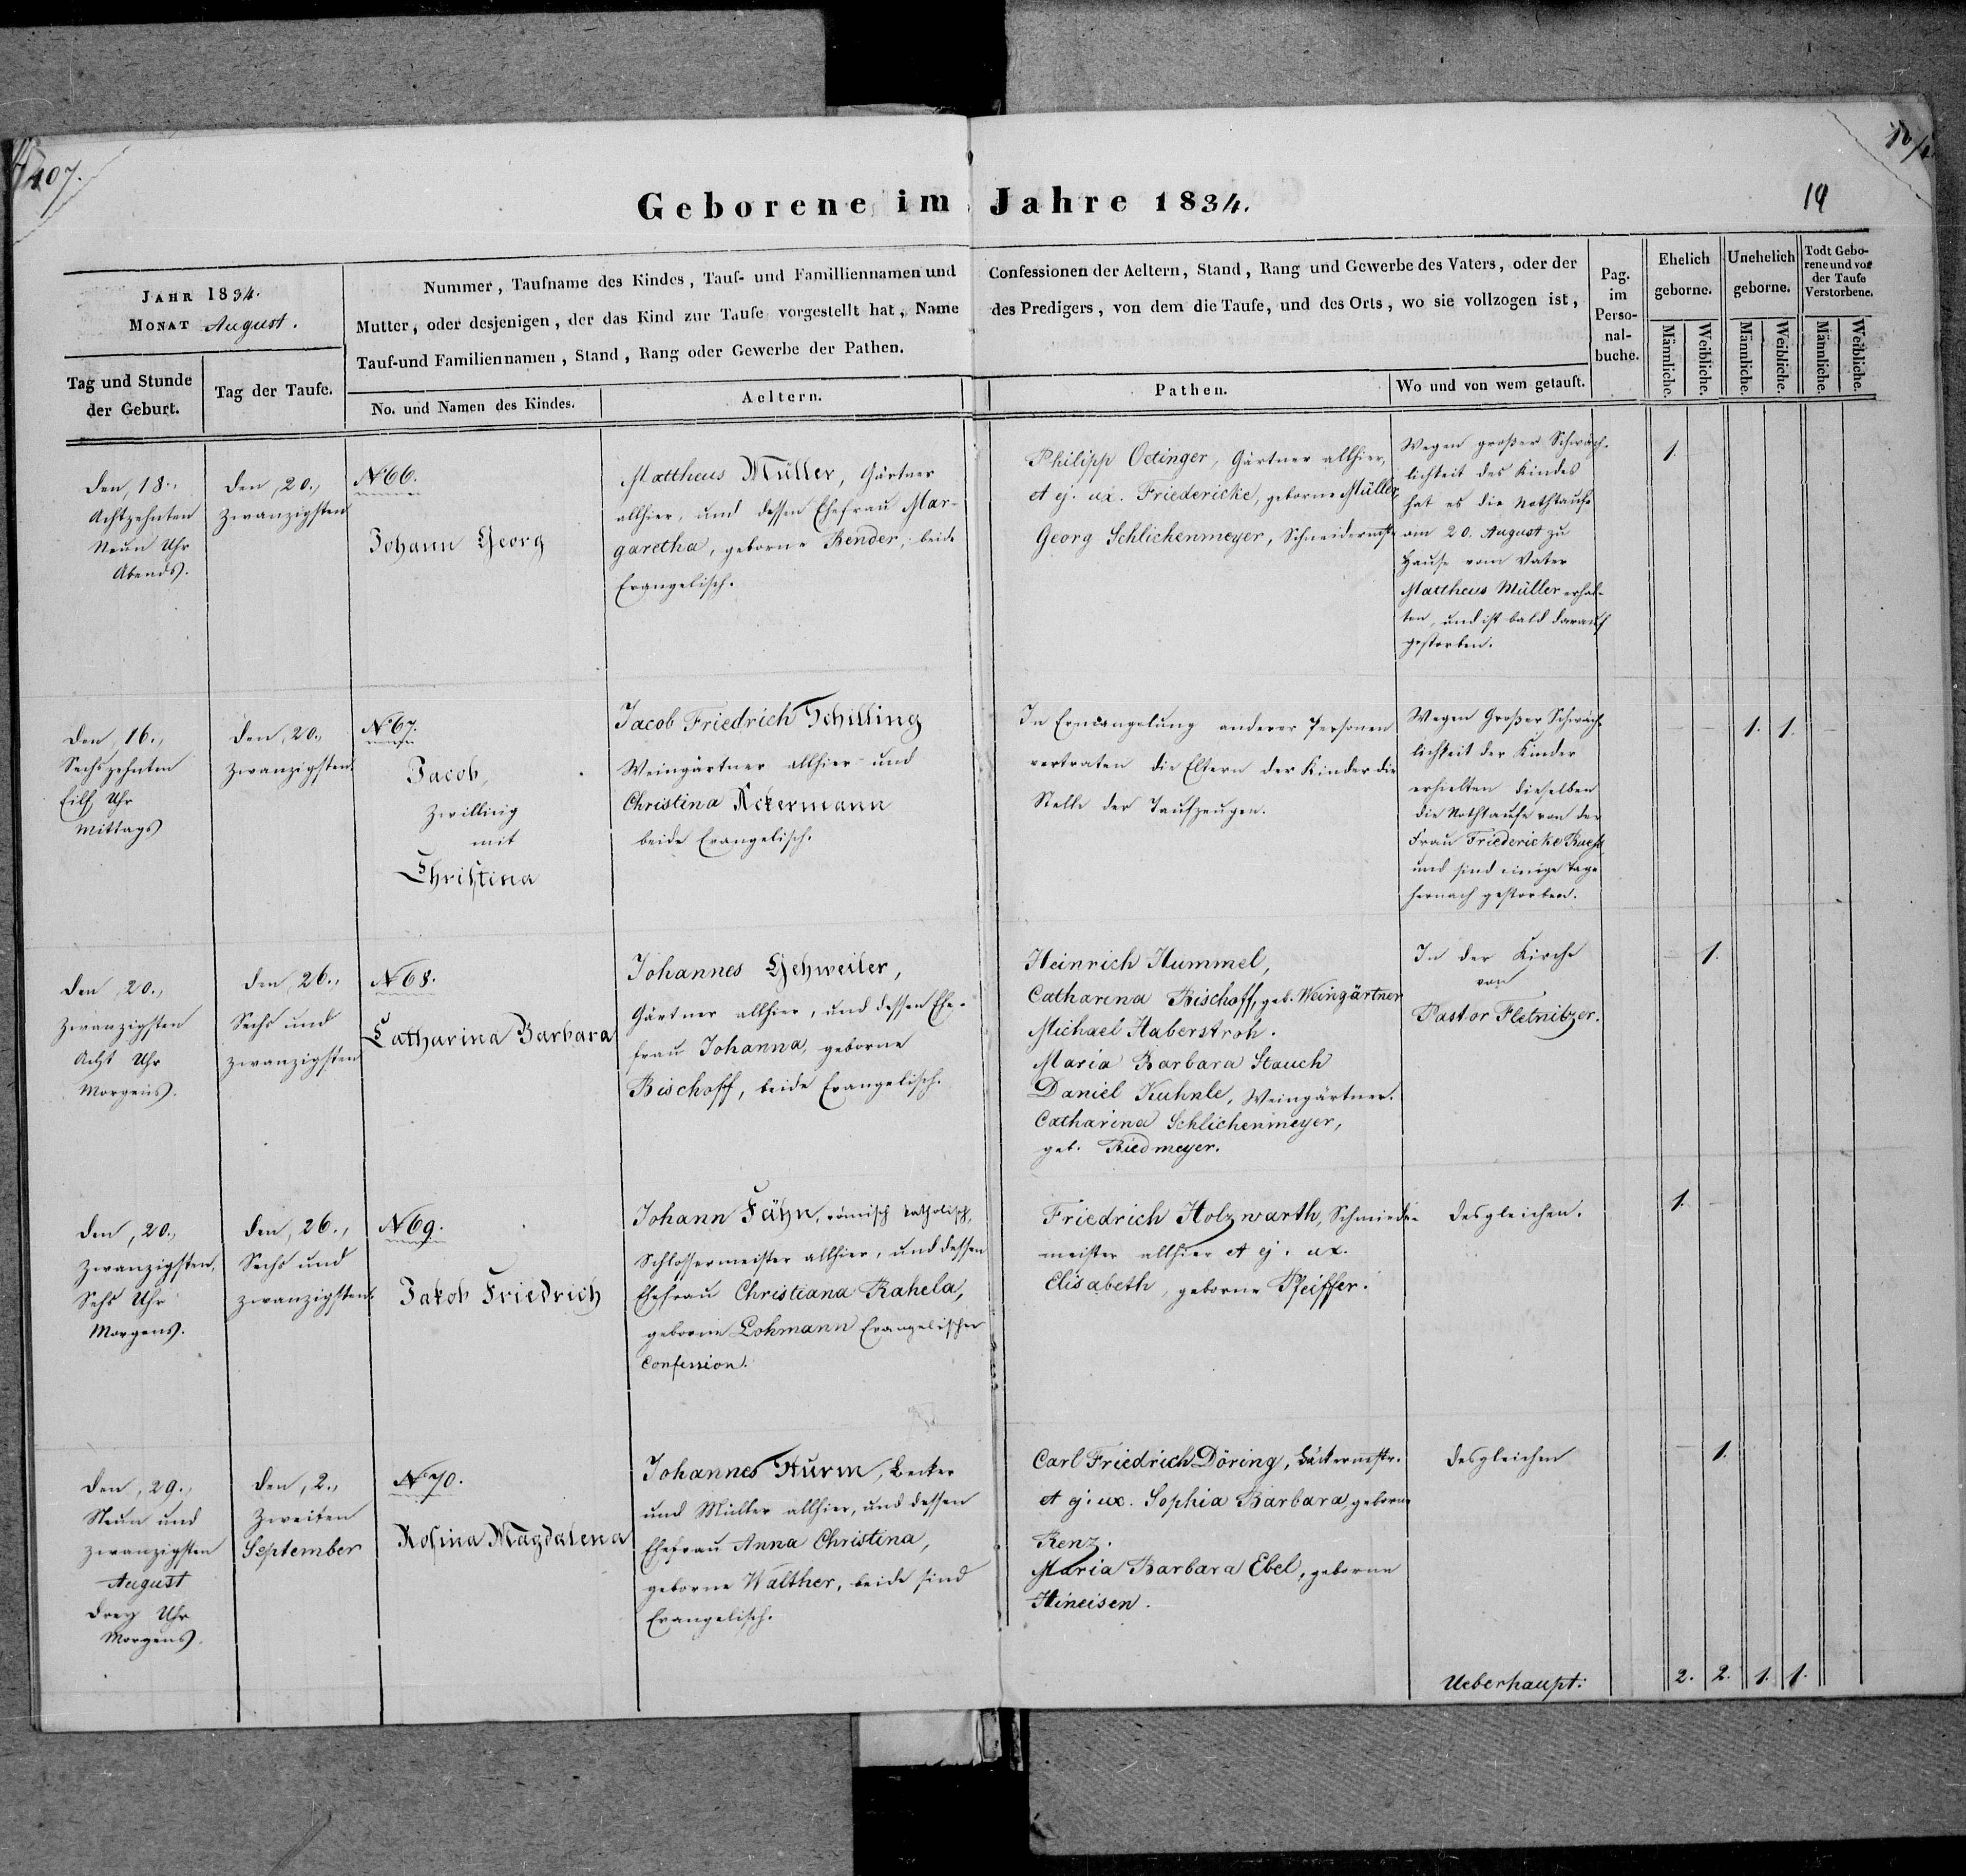 407.
19
Geborene im Jahre 1834.
JAHR 1834.
MONAT August.
Tag und Stunde
der Geburt.
Tag der Taufe.
Nummer, Taufname des Kindes, Tauf- und Familliennamen und
Mutter, oder desjenigen, der das Kind zur Taufe vorgestellt hat, Name
Tauf-und Familiennamen, Stand, Rang oder Gewerbe der Pathen.
No. und Namen des Kindes.
Aeltern.
Confessionen der Aeltern, Stand, Rang und Gewerbe des Vaters, oder der
des Predigers, von dem die Taufe, und des Orts, wo sie vollzogen ist,
Pathen.
Wo und von wem getauft.
Pag.
im
Perso-
nal-
buche.
Ehelich
geborne.
Unehelich
geborne.
Todt Gebo-
rene und vor
der Taufe
Verstorbene.
Männliche.
Weibliche.
Männliche.
Weibliche.
Männliche.
Weibliche.
den, 18.,
Achtzehnten
Neun Uhr
Abends.
den, 20.,
zwanzigsten
N66.
Johann Georg
Mattheus Müller, Gärtner
allhier, und dessen Ehefrau Mar-
garetha, geborne Bender, beide
Evangelisch.
Philipp Oetinger, Gärtner allhier,
et ej. ux. Friedericke, geborne Müller,
Georg Schlichenmeyer, Schneidermstr
Wegen großer Schwäch-
lichkeit des Kindes
hat es die Nothtaufe
am 20. August zu
Hause vom Vater
Mattheus Müller erhal-
ten, und ist bald darauf
gestorben.
1.
den, 16.,
Sechszehnten
Eilf Uhr
Mittags
den, 20.,
zwanzigsten
N67.
Jacob,
Zwilling
mit
Christina
Jacob Friedrich Schilling
Weingärtner allhier und
Christina Ackermann
beide Evangelisch.
In Ermangelung anderer Personen
vertraten die Eltern der Kinder die
Stelle der Taufzeugen.
Wegen Großer Schwäch
lichkeit der Kinder
erhielten dieselben
die Nothtaufe von der
Frau Friedericke
und sind einige Tage
hernach gestorben.
1. 1.
den 20.,
zwanzigsten
Acht Uhr
Morgens.
den, 26.,
Sechs und
zwanzigsten
N68.
Catharina Barbara
Johannes Gehweiler,
Gärtner allhier, und dessen Ehe-
frau Johanna, geborne
Bischoff, beide Evangelisch.
Heinrich Hummel,
Catharina Bischoff, geb. Weingärtner
Michael Haberstroh.
Maria Barbara Stauch
Daniel Kuhnle, Weingärtner.
Catharina Schlichenmeyer,
geb. Riedmeyer.
In der Kirche
von
Pastor Fletnitzer.
1.
den, 20.,
zwanzigsten,
Sechs Uhr
Morgens.
den, 26.,
Sechs und
zwanzigsten
N69.
Jakob Friedrich
Johann Fähn, römisch katholisch,
Schlossermeister allhier, und dessen
Ehefrau Christiana Rahela,
geborne Lohmann Evangelischer
Confession.
Friedrich Holzwarth, Schmiede-
meister allhier et ej. ux.
Elisabeth, geborne Pfeiffer.
desgleichen.
1.
den, 29.,
Neun und
zwanzigsten
August
Drey Uhr
Morgens.
den, 2.,
Zweiten
September
N70.
Rosina Magdalena
Johannes Sturm, Becker
und Müller allhier, und dessen
Ehefrau Anna Christina,
geborne Walther, beide sind
Evangelisch.
Carl Friedrich Döring, Bäckermstr.
et ej. ux. Sophia Barbara, geborne
Renz.
Maria Barbara Ebel, geborne
Hineisen.
desgleichen
1.
Ueberhaupt:
2. 2. 1. 1.